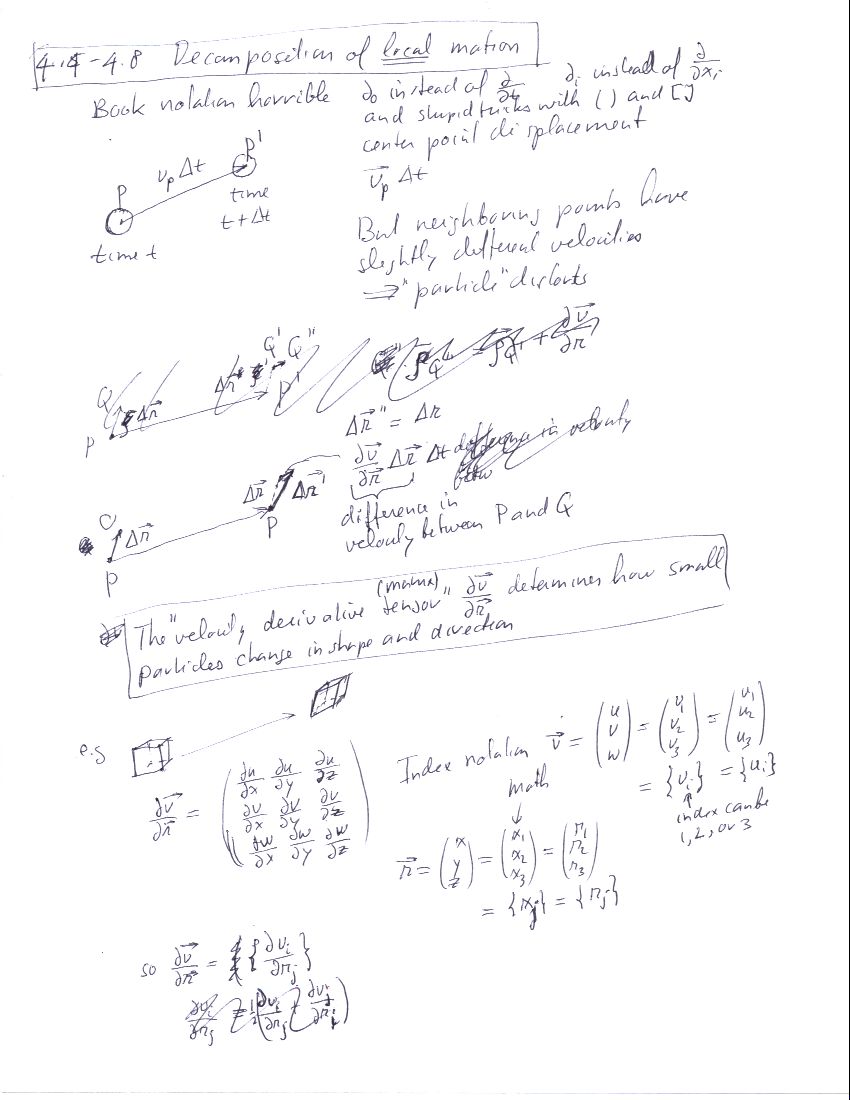 4.4-4.8 Decomposition of local motion
Book notation horrible
∂₀ instead of ∂/∂t ∂ᵢ instead of ∂/∂xᵢ
and stupid tricks with () and []
center point displacement
v⃗ₚ Δt
P
vₚ Δt
P'
time
t+Δt
time t
But neighboring points have
slightly different velocities
⇒ "particle" distorts
Q
Δr⃗
P
Q' Q"
Δr⃗
P'
+ ∂v⃗/∂r
Δr⃗" = Δr
∂v⃗/∂r⃗ Δr⃗ Δt difference in velocity
difference in
velocity between P and Q
Δr⃗
P
Δr⃗
Δr⃗'
P
The "velocity derivative (matrix) tensor" ∂v⃗/∂r⃗ determines how small
particles change in shape and direction
e.g
∂v⃗/∂r⃗ = ( ∂u/∂x ∂u/∂y ∂u/∂z
∂v/∂x ∂v/∂y ∂v/∂z
∂w/∂x ∂w/∂y ∂w/∂z )
Index notation v⃗ = (u v w) = (v₁ v₂ v₃) = (u₁ u₂ u₃)
= {vᵢ} = {uᵢ}
index can be
1, 2, or 3
math
r⃗ = (x y z) = (x₁ x₂ x₃) = (r₁ r₂ r₃)
= {xⱼ} = {rⱼ}
so ∂v⃗/∂r⃗ = {∂vᵢ/∂rⱼ}
∂vᵢ/∂rⱼ = ½(∂vᵢ/∂rⱼ + ∂vⱼ/∂rᵢ)